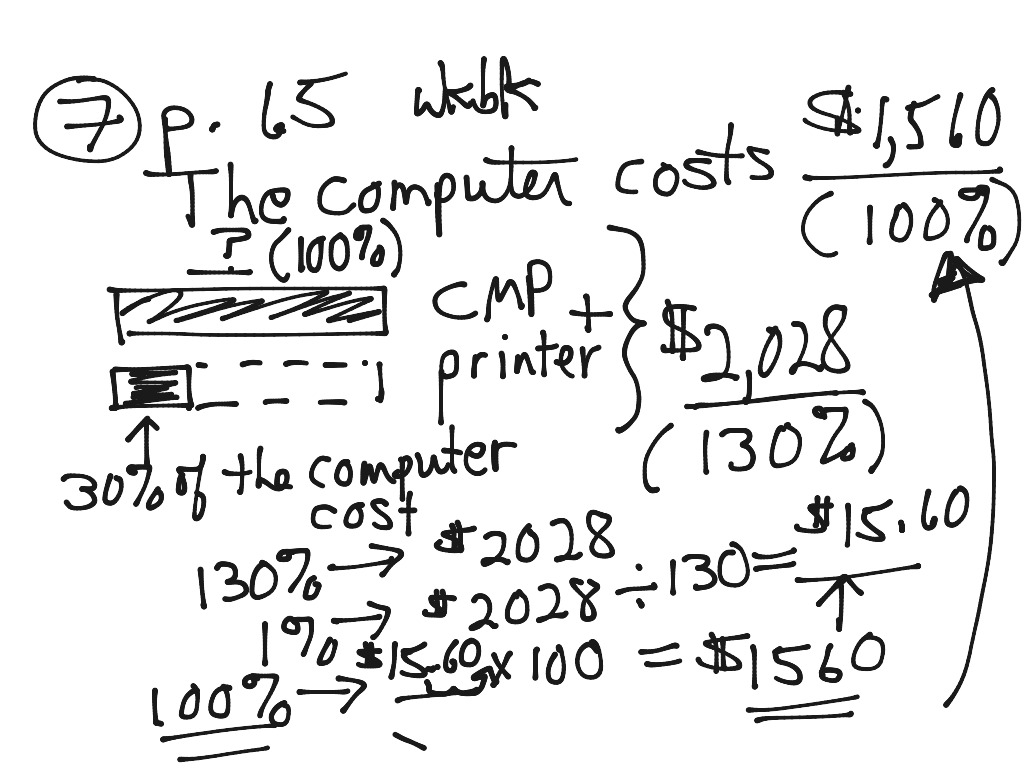 7 p. 65 wkbk
The computer costs $1,560
(100%)
? (100%)
CMP +
printer
$2,028
(130%)
30% of the computer
cost
130% → $2028
1% → $2028 ÷ 130 = $15.60
100% → $15.60 x 100 = $1560